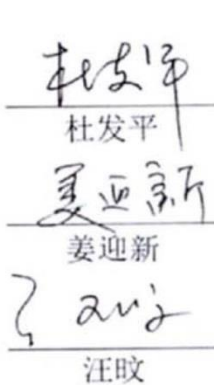 杜发平
杜发平
姜迎新
姜迎新
汪旼